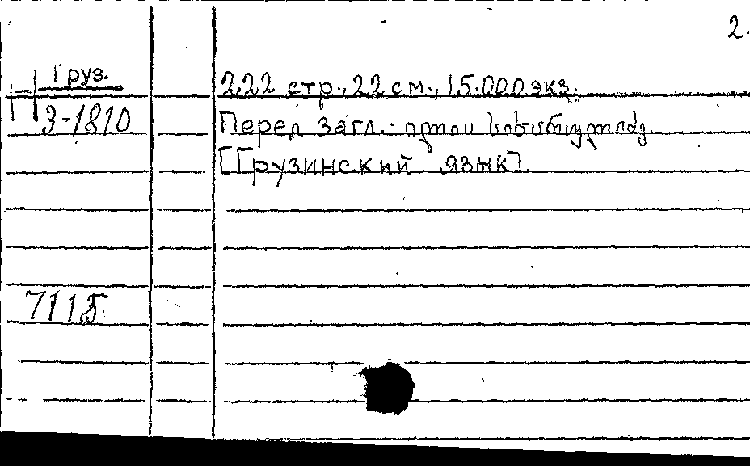 2.
Груз.
222 стр., 22 см., 15.000 экз.
З-1810
Перед загл.:
[Грузинский язык]
7115